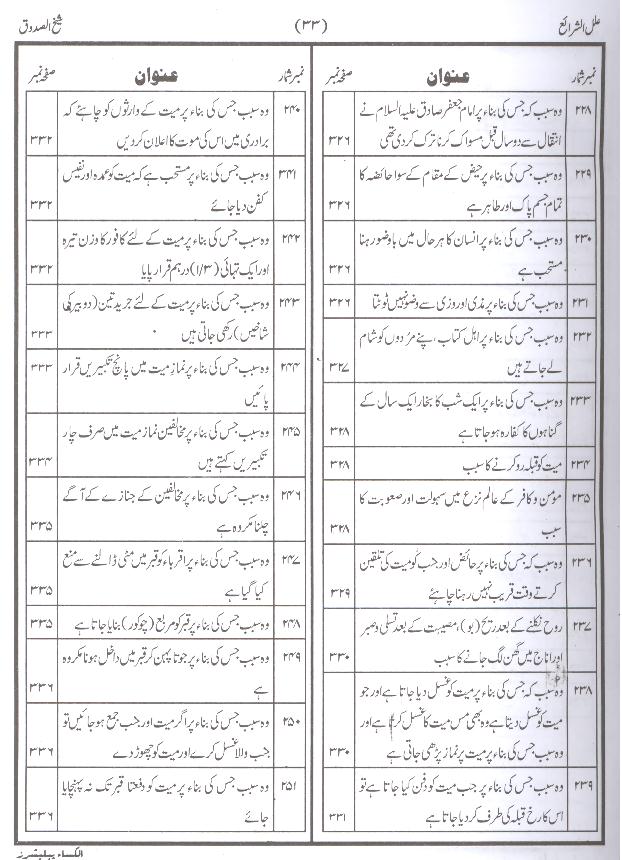 علل الشرائع (۳۳) شیخ الصدوق
نمبر شمار عنوان صفحہ نمبر
۲۲۸ وہ سبب کہ جس کی بناء پر امام جعفر صادق علیہ السلام نے
انتقال سے دو سال قبل مسواک کرنا ترک کردی تھی ۳۲۶
۲۲۹ وہ سبب جس کی بناء پر حیض کے مقام کے سوا حائضہ کا
تمام جسم پاک اور طاہر ہے ۳۲۶
۲۳۰ وہ سبب جس کی بناء پر انسان کا ہر حال میں باوضو رہنا
مستحب ہے ۳۲۶
۲۳۱ وہ سبب جس کی بناء پر مذی اور وزی سے وضو نہیں ٹوٹتا ۳۲۶
۲۳۲ وہ سبب جس کی بناء پر اہل کتاب، اپنے مردوں کو شام
لے جاتے ہیں ۳۲۷
۲۳۳ وہ سبب جس کی بناء پر ایک شب کا بخار ایک سال کے
گناہوں کا کفارہ ہو جاتا ہے ۳۲۸
۲۳۴ میت کو قبلہ رو کرنے کا سبب ۳۲۸
۲۳۵ مؤمن و کافر کے عالم نزع میں سہولت اور صعوبت کا
سبب ۳۲۸
۲۳۶ وہ سبب کہ جس کی بناء پر حائض اور جنب کو میت کی تلقین
کرتے وقت قریب نہیں رہنا چاہئے ۳۲۹
۲۳۷ روح نکلنے کے بعد ریح (بو)، مصیبت کے بعد تسلی و صبر
اور اناج میں گھن لگ جانے کا سبب ۳۳۰
۲۳۸ وہ سبب کہ جس کی بناء پر میت کو غسل دیا جاتا ہے اور جو
میت کو غسل دیتا ہے وہ بھی مس میت کا غسل کرتا ہے اور
وہ سبب جس کی بناء پر میت پر نماز پڑھی جاتی ہے ۳۳۰
۲۳۹ وہ سبب جس کی بناء پر جب میت کو دفن کیا جاتا ہے تو
اس کا رخ قبلہ کی طرف کردیا جاتا ہے ۳۳۱
نمبر شمار عنوان صفحہ نمبر
۲۴۰ وہ سبب جس کی بناء پر میت کے وارثوں کو چاہئے کہ
برادری میں اس کی موت کا اعلان کردیں ۳۳۲
۳۴۱ وہ سبب جس کی بناء پر مستحب ہے کہ میت کو عمدہ اور نفیس
کفن دیا جائے ۳۳۲
۲۴۲ وہ سبب جس کی بناء پر میت کے لئے کافور کا وزن تیرہ
اور ایک تہائی (۱/۳) درہم قرار پایا ۳۳۲
۲۴۳ وہ سبب جس کی بناء پر میت کے لئے جریدتین (دو بیر کی
شاخیں) رکھی جاتی ہیں ۳۳۳
۲۴۴ وہ سبب جس کی بناء پر نماز میت میں پانچ تکبیریں قرار ۳۳۳
پائیں
۲۴۵ وہ سبب جس کی بناء پر مخالفین نماز میت میں صرف چار
تکبیریں کہتے ہیں ۳۳۴
۲۴۶ وہ سبب جس کی بناء پر مخالفین کے جنازے کے آگے
چلنا مکروہ ہے ۳۳۵
۲۴۷ وہ سبب جس کی بناء پر اقرباء کو قبر میں مٹی ڈالنے سے منع
کیا گیا ہے ۳۳۵
۲۴۸ وہ سبب جس کی بناء پر قبر کو مربع (چوکور) بنایا جاتا ہے ۳۳۵
۲۴۹ وہ سبب جس کی بناء پر جوتا پہن کر قبر میں داخل ہونا مکروہ
ہے ۳۳۶
۲۵۰ وہ سبب جس کی بناء پر اگر میت اور جنب جمع ہو جائیں تو
جنب والا غسل کرے اور میت کو چھوڑ دے ۳۳۶
۲۵۱ وہ سبب جس کی بناء پر میت کو دفعتا قبر تک نہ پہنچایا
جائے ۳۳۶
الکساء پبلیشرز